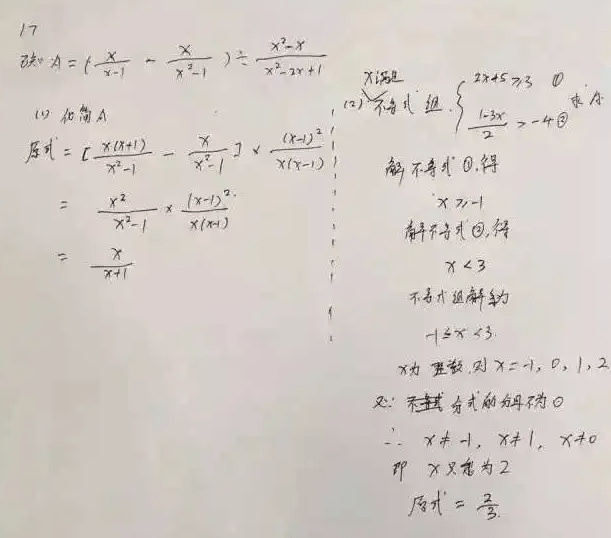 17
已知 A = ( \frac{x}{x-1} - \frac{x}{x^2-1} ) ÷ \frac{x^2-x}{x^2-2x+1}
(1) 化简A
原式 = [ \frac{x(x+1)}{x^2-1} - \frac{x}{x^2-1} ] × \frac{(x-1)^2}{x(x-1)}
= \frac{x^2}{x^2-1} × \frac{(x-1)^2}{x(x-1)}
= \frac{x}{x+1}
x满足
(2) 不等式组 { 2x+5 ≥ 3 ① \frac{1-3x}{2} > -4 ② 求A
解不等式①,得
x ≥ -1
解不等式②,得
x < 3
不等式组解集为
-1 ≤ x < 3
x为整数,则 x = -1, 0, 1, 2
又∵ 分式的分母不为0
∴ x ≠ -1, x ≠ 1, x ≠ 0
即 x只能为2
原式 = \frac{2}{3}